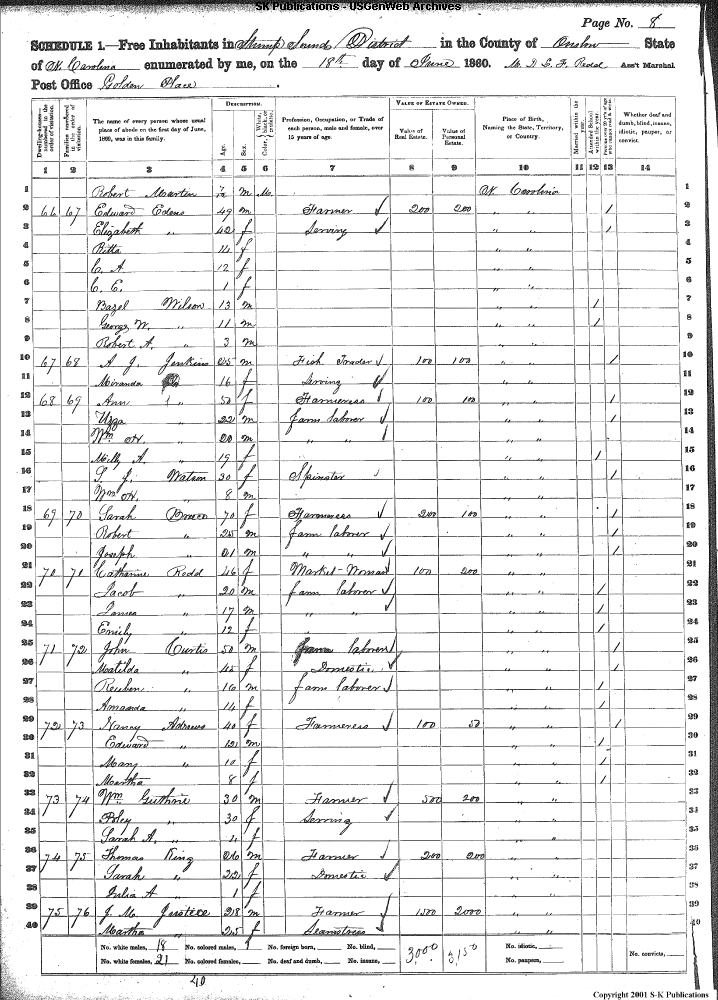 SK Publications - USGenWeb Archives
Page No. 8
SCHEDULE 1.—Free Inhabitants in Stump Sound District in the County of Onslow State
of N. Carolina enumerated by me, on the 18th day of June 1860. Ass't Marshal
Post Office Golden Place.
DESCRIPTION. VALUE OF ESTATE OWNED.
Dwelling-houses— numbered in the order of visitation. Families numbered in the order of visitation. The name of every person whose usual place of abode on the first day of June, 1860, was in this family. Age. Sex. Color, Profession, Occupation, or Trade of each person, male and female, over 15 years of age. Value of Real Estate. Value of Personal Estate. Place of Birth, Naming the State, Territory, or Country. Married within the year. Attended School within the year. Whether deaf and dumb, blind, insane, idiotic, pauper, or convict.
1 2 3 4 5 6 7 8 9 10 11 12 13 14
1 Robert Martin m Mu. N. Carolina 1
2 66 67 Edward Edens 49 m Farmer ✓ 200 200 " " / 2
3 Elizabeth " 42 f Serving ✓ " " / 3
4 14 f " " 4
5 C. A 12 f " " 5
6 C. E. 1 f " " 6
7 Bazel Wilson 13 m " " / 7
8 George W. " 11 m " " / 8
9 Robert A. " 3 m " " 9
10 67 68 A. J. Jenkins 25 m Fish Trader ✓ 100 100 " / 10
11 Miranda 16 f Serving ✓ " " 11
12 68 69 Ann " 50 f Farmeress ✓ 100 100 " " / 12
13 " 22 m farm laborer ✓ " " / 13
14 Wm H. " 20 m " " ✓ " " 14
15 Milly A. " 19 f " " / 15
16 S. J. Watson 30 f Spinster " " / 16
17 Wm H. " 8 m " " 17
18 69 70 Sarah 70 f Farmeress ✓ 200 100 " " / 18
19 Robert " 25 m farm laborer ✓ " " / 19
20 Joseph " 21 m " " ✓ " " / 20
21 70 71 Catharine Redd 46 f Market-Woman 100 200 " " 21
22 Jacob " 20 m farm laborer ✓ " " / 22
23 James " 17 m " " ✓ " " / 23
24 Emily " 12 f " " / 24
25 71 72 John Curtis 50 m farm laborer ✓ " " / 25
26 Matilda " 45 f Domestic ✓ " " / 26
27 Reuben " 16 m farm laborer ✓ " " / 27
28 Amanda " 14 f " " / 28
29 72 73 Nancy Andrews 40 f Farmeress ✓ 100 50 " " / 29
30 Edward " 12 m " " / 30
31 Mary " 10 f " " / 31
32 Martha " 8 f " " / 32
33 73 74 Wm. Guthrie 30 m Farmer ✓ 500 200 " " 33
34 " 30 f Serving ✓ " " 34
35 Sarah A. " f " " 35
36 74 75 Thomas King 26 m Farmer ✓ 200 200 " " 36
37 Sarah " 22 f Domestic ✓ " " 37
38 Julia A " 1 f " " 38
39 75 76 J. M. Justice 28 m Farmer ✓ 1500 2000 " " 39
40 Martha " 25 f Seamstress ✓ " " 40
No. white males, 18 No. colored males, 1 No. foreign born, No. blind, 3,000 No. idiotic,
No. white females, 21 No. colored females, No. deaf and dumb, No. insane, No. paupers, No. convicts,
40
Copyright 2001 S-K Publications